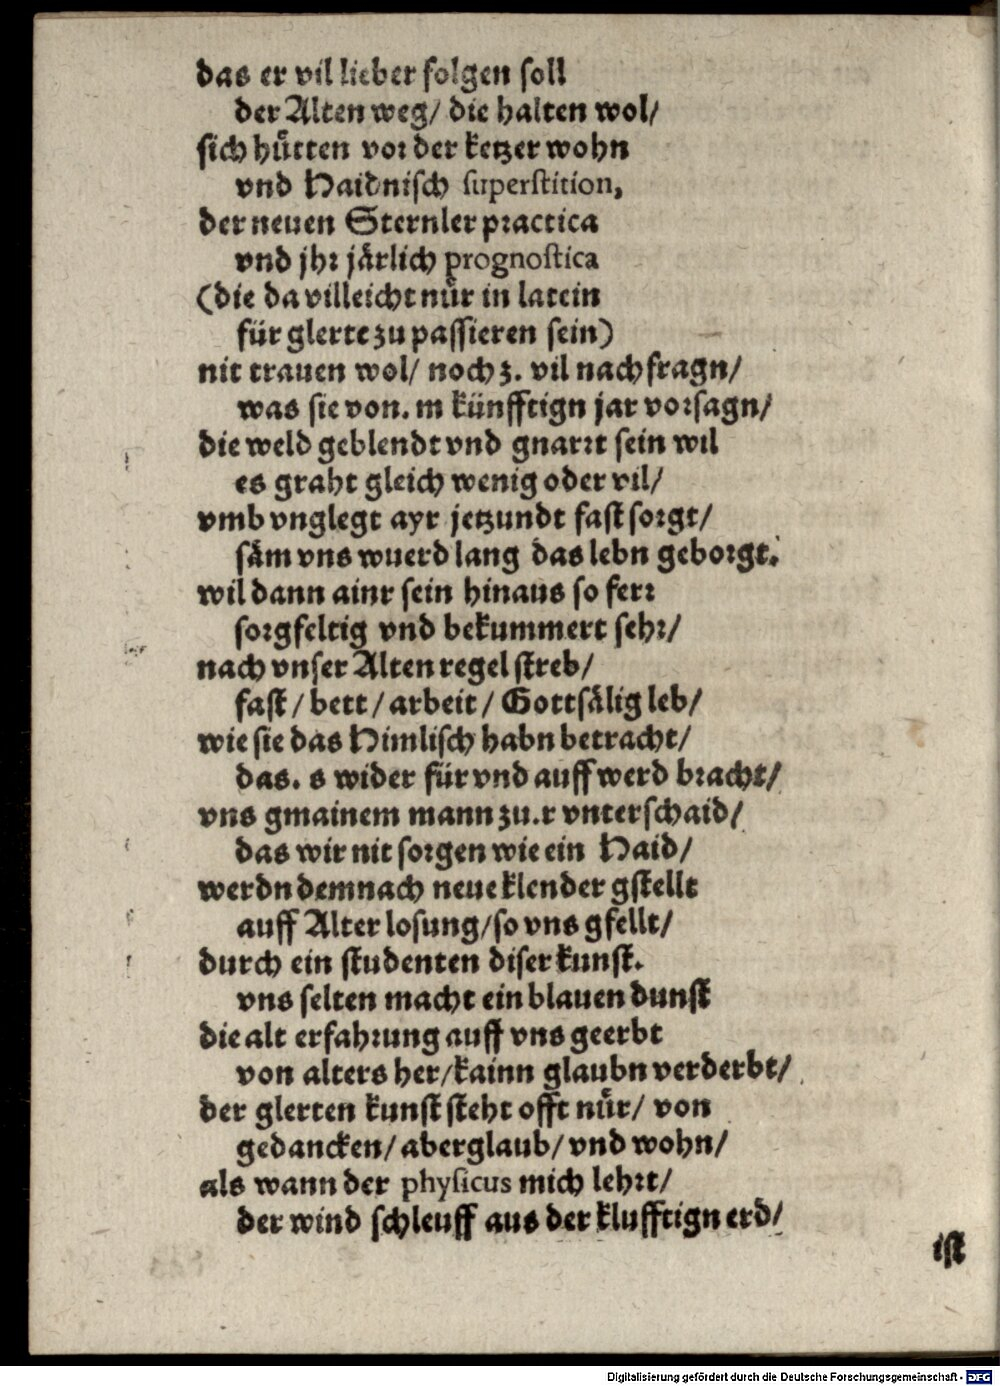 das er vil lieber folgen soll
der Alten weg/ die halten wol/
sich hůtten vor der ketzer wohn
vnd Haidnisch superstition,
der neuen Sternler practica
vnd jhr järlich prognostica
(die da villeicht nůr in latein
für glerte zu passieren sein)
nit trauen wol/ noch z. vil nachfragn/
was sie von. m künfftign jar vorsagn/
die weld geblendt vnd gnarrt sein wil
es graht gleich wenig oder vil/
vmb vnglegt ayr jetzundt fast sorgt/
säm vns wuerd lang das lebn geborgt.
wil dann ainr sein hinaus so ferr
sorgfeltig vnd bekummert sehr/
nach vnser Alten regel streb/
fast/ bett/ arbeit/ Gottsälig leb/
wie sie das Himlisch habn betracht/
das. s wider für vnd auff werd bracht/
vns gmainem mann zu.r vnterschaid/
das wir nit sorgen wie ein Haid/
werdn demnach neue klender gstellt
auff Alter losung/so vns gfellt/
durch ein studenten diser kunst.
vns selten macht ein blauen dunst
die alt erfahrung auff vns geerbt
von alters her/kainn glaubn verderbt/
der glerten kunst steht offt nůr/ von
gedancken/ aberglaub/ vnd wohn/
als wann der physicus mich lehrt/
der wind schleuff aus der klufftign erd/
ist
Digitalisierung gefördert durch die Deutsche Forschungsgemeinschaft - DFG